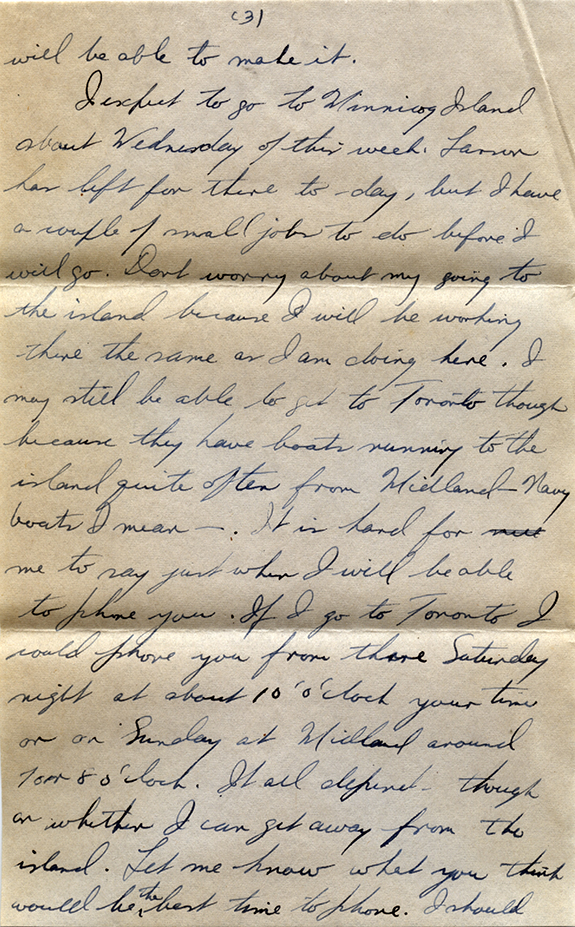 (3)
will be able to make it.
I expect to go to Minnicog Island
about Wednesday of this week. Larson
has left for there to-day, but I have
a couple of small jobs to do before I
will go. Dont worry about my going to
the island because I will be working
there the same as I am doing here. I
may still be able to get to Toronto though
because they have boats running to the
island quite often from Midland - Navy
boats I mean -. It is hard for
me to say just when I will be able
to phone you. If I go to Toronto I
could phone you from there Saturday
night at about 10 o'clock your time
or on Sunday at Midland around
7 or 8 o'clock. It all depends though
on whether I can get away from the
island. Let me know what you think
would be the best time to phone. I should